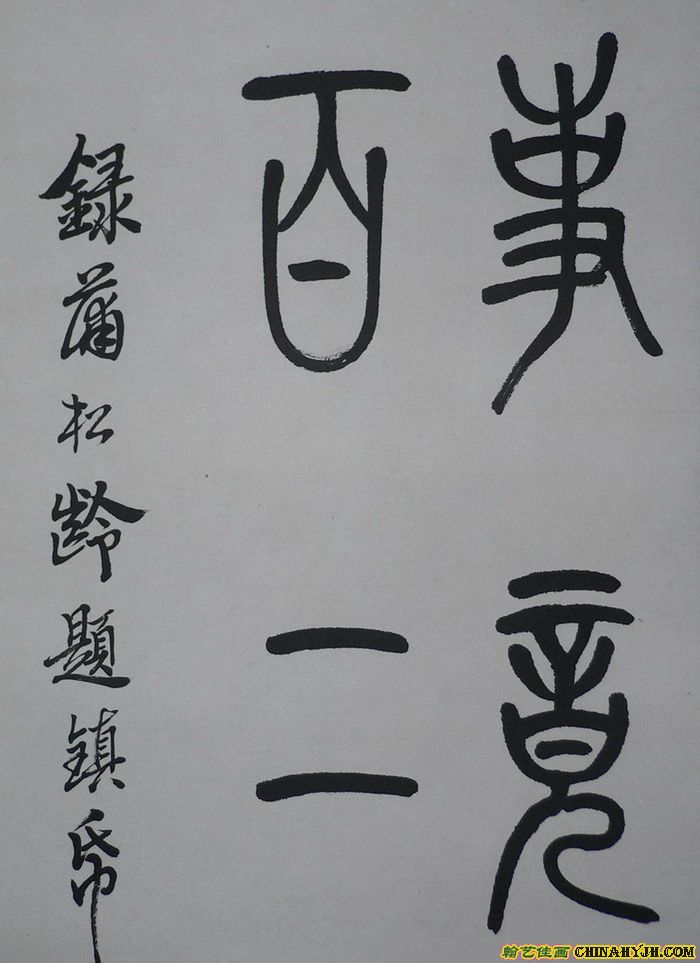 事竟
百二
録蒲松齡題鎮帋
翰艺佳画 CHINAHYJH.COM